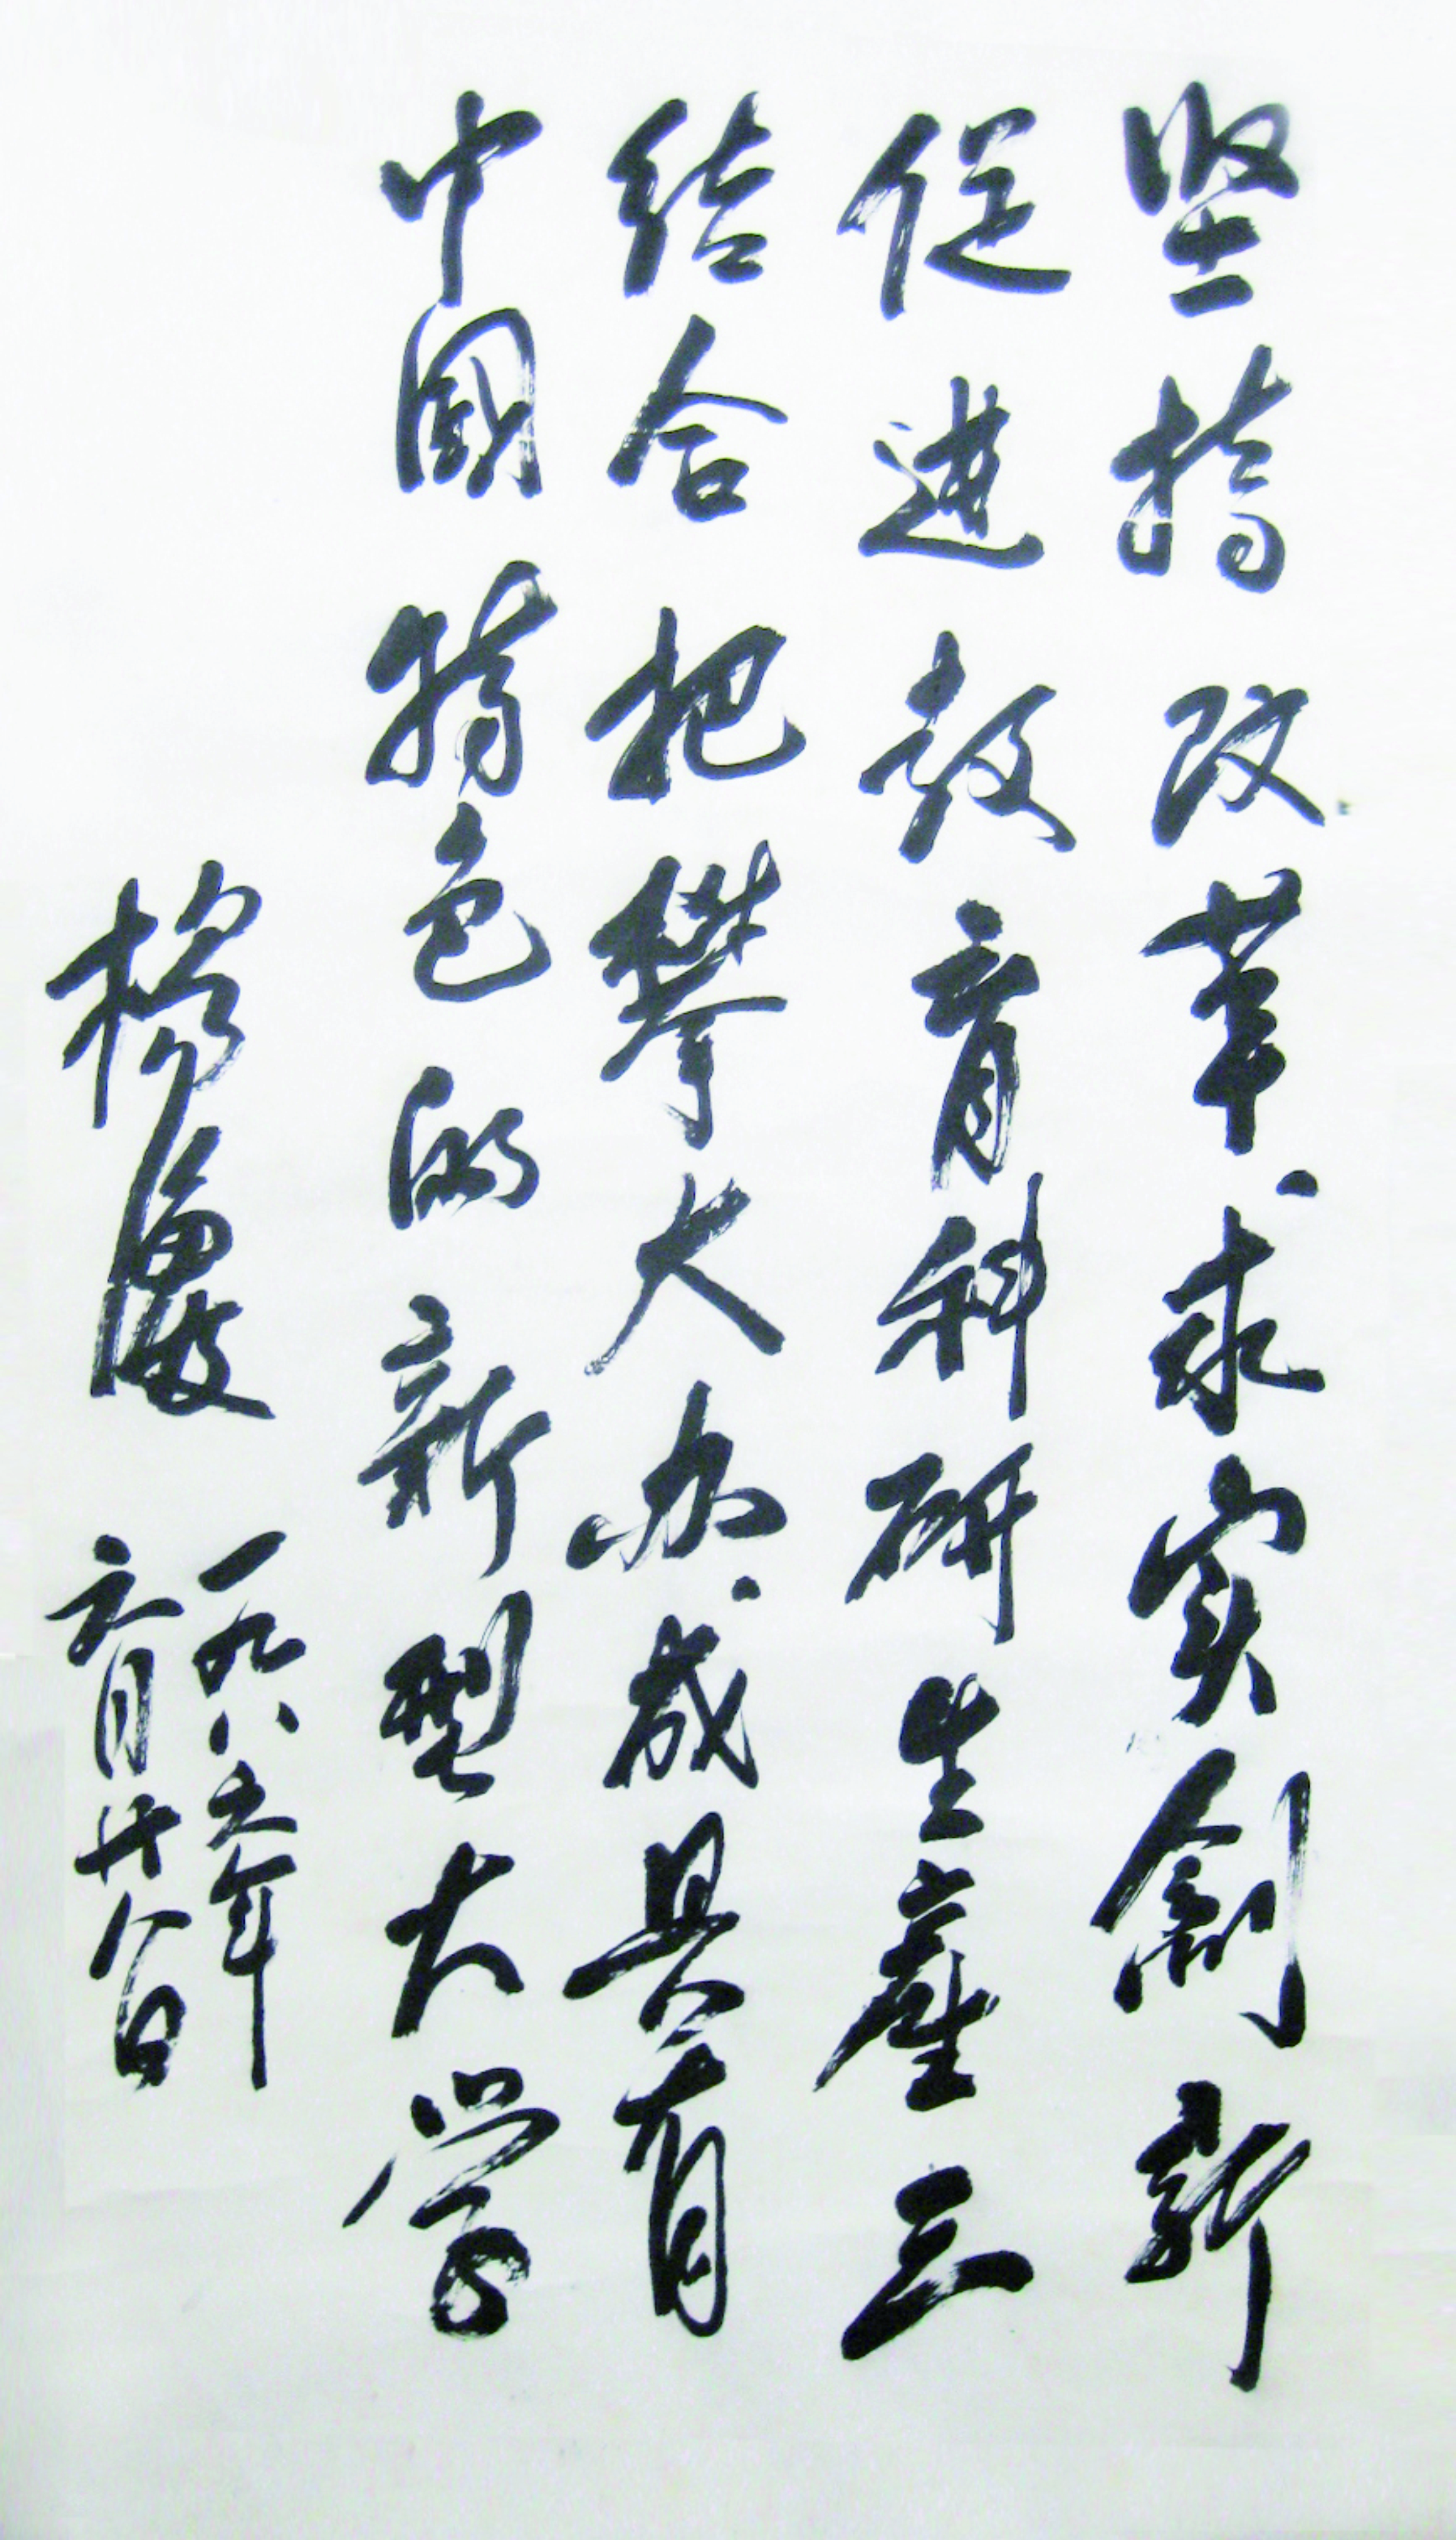 坚持改革求实創新
促进教育科研生產三
结合把攀大办成具有
中國特色的新型大学
一九八五年
六月廿八日